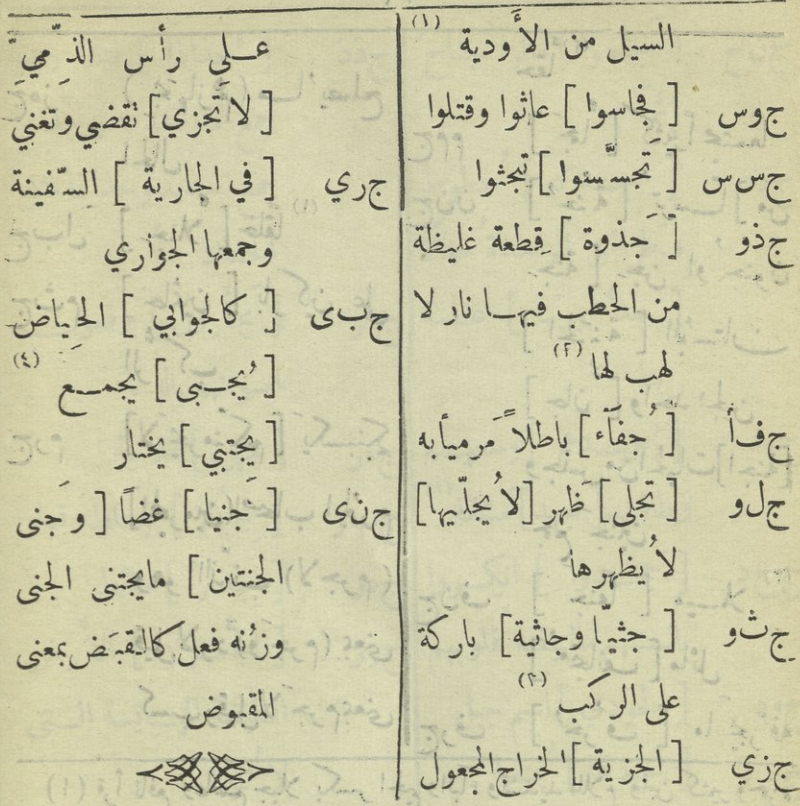 السيل من الأَودية (١)
ج وس [ فجاسوا ] عاثوا وقتلوا
ج س س [ تَجسَّسوا ] تبحثوا
ج ذو [ جَذوة ] قِطعة غليظة
من الحطب فيهـا نار لا
لهب لها (٢)
ج ف أ [ جُفَآء ] باطلاً مَرمياً به
ج ل و [ تجلى ] ظَهر [ لا يُجلّيها ]
لا يُظهرها
ج ث و [ جثيّا وجاثية ] باركة
على الركب (٣)
ج زي [ الجزية ] الخراج المجعول
علـى رأس الذِّميِّ
[ لا تَجزي ] تقضي وتغني
ج ري [ في الجارية ] السّفينة
وجمعها الجواري
ج ب ى [ كالجوابي ] الحِياض
[ يُجـبى ] يجمـع (٤)
[ يجتبي ] يختار
ج ن ى [ جَنيا ] غضاً [ وجَنى
الجنتين ] مايجتنى الجنى
وزُنه فعل كالقبَض بمعنى
المقبوض